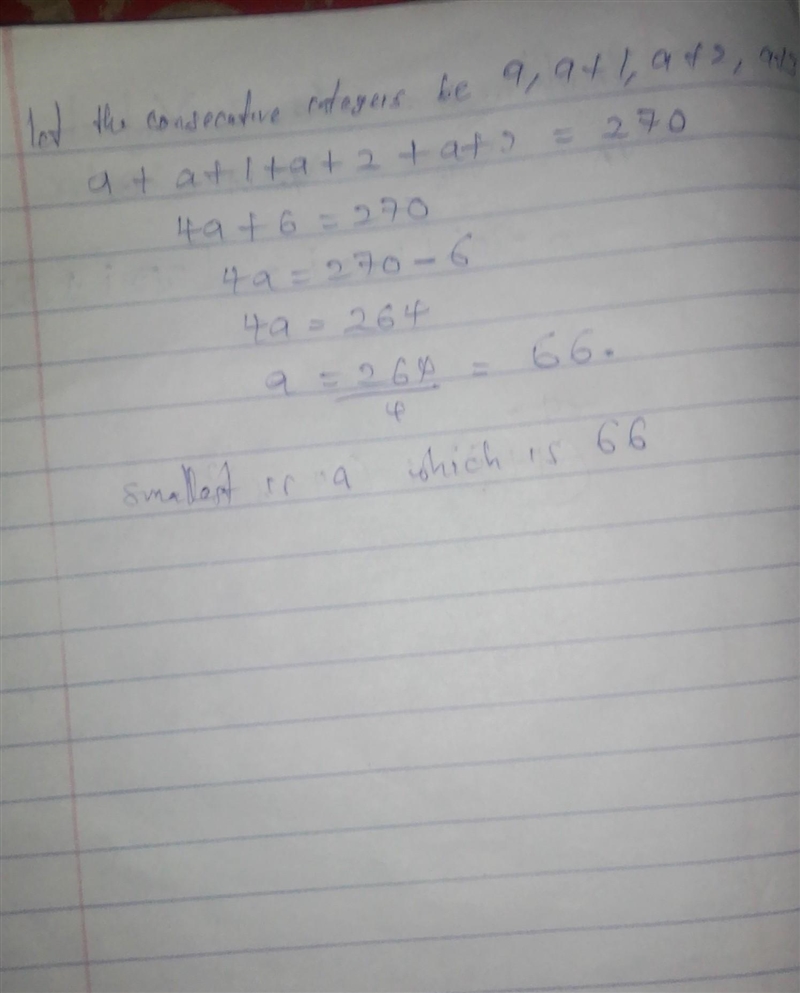 let the consecutive integers be a, a+1, a+2, a+3
a + a+1+a+2 +a+3 = 270
4a+6=270
4a=270-6
4a=264
a = 264/4 = 66.
smallest is a which is 66